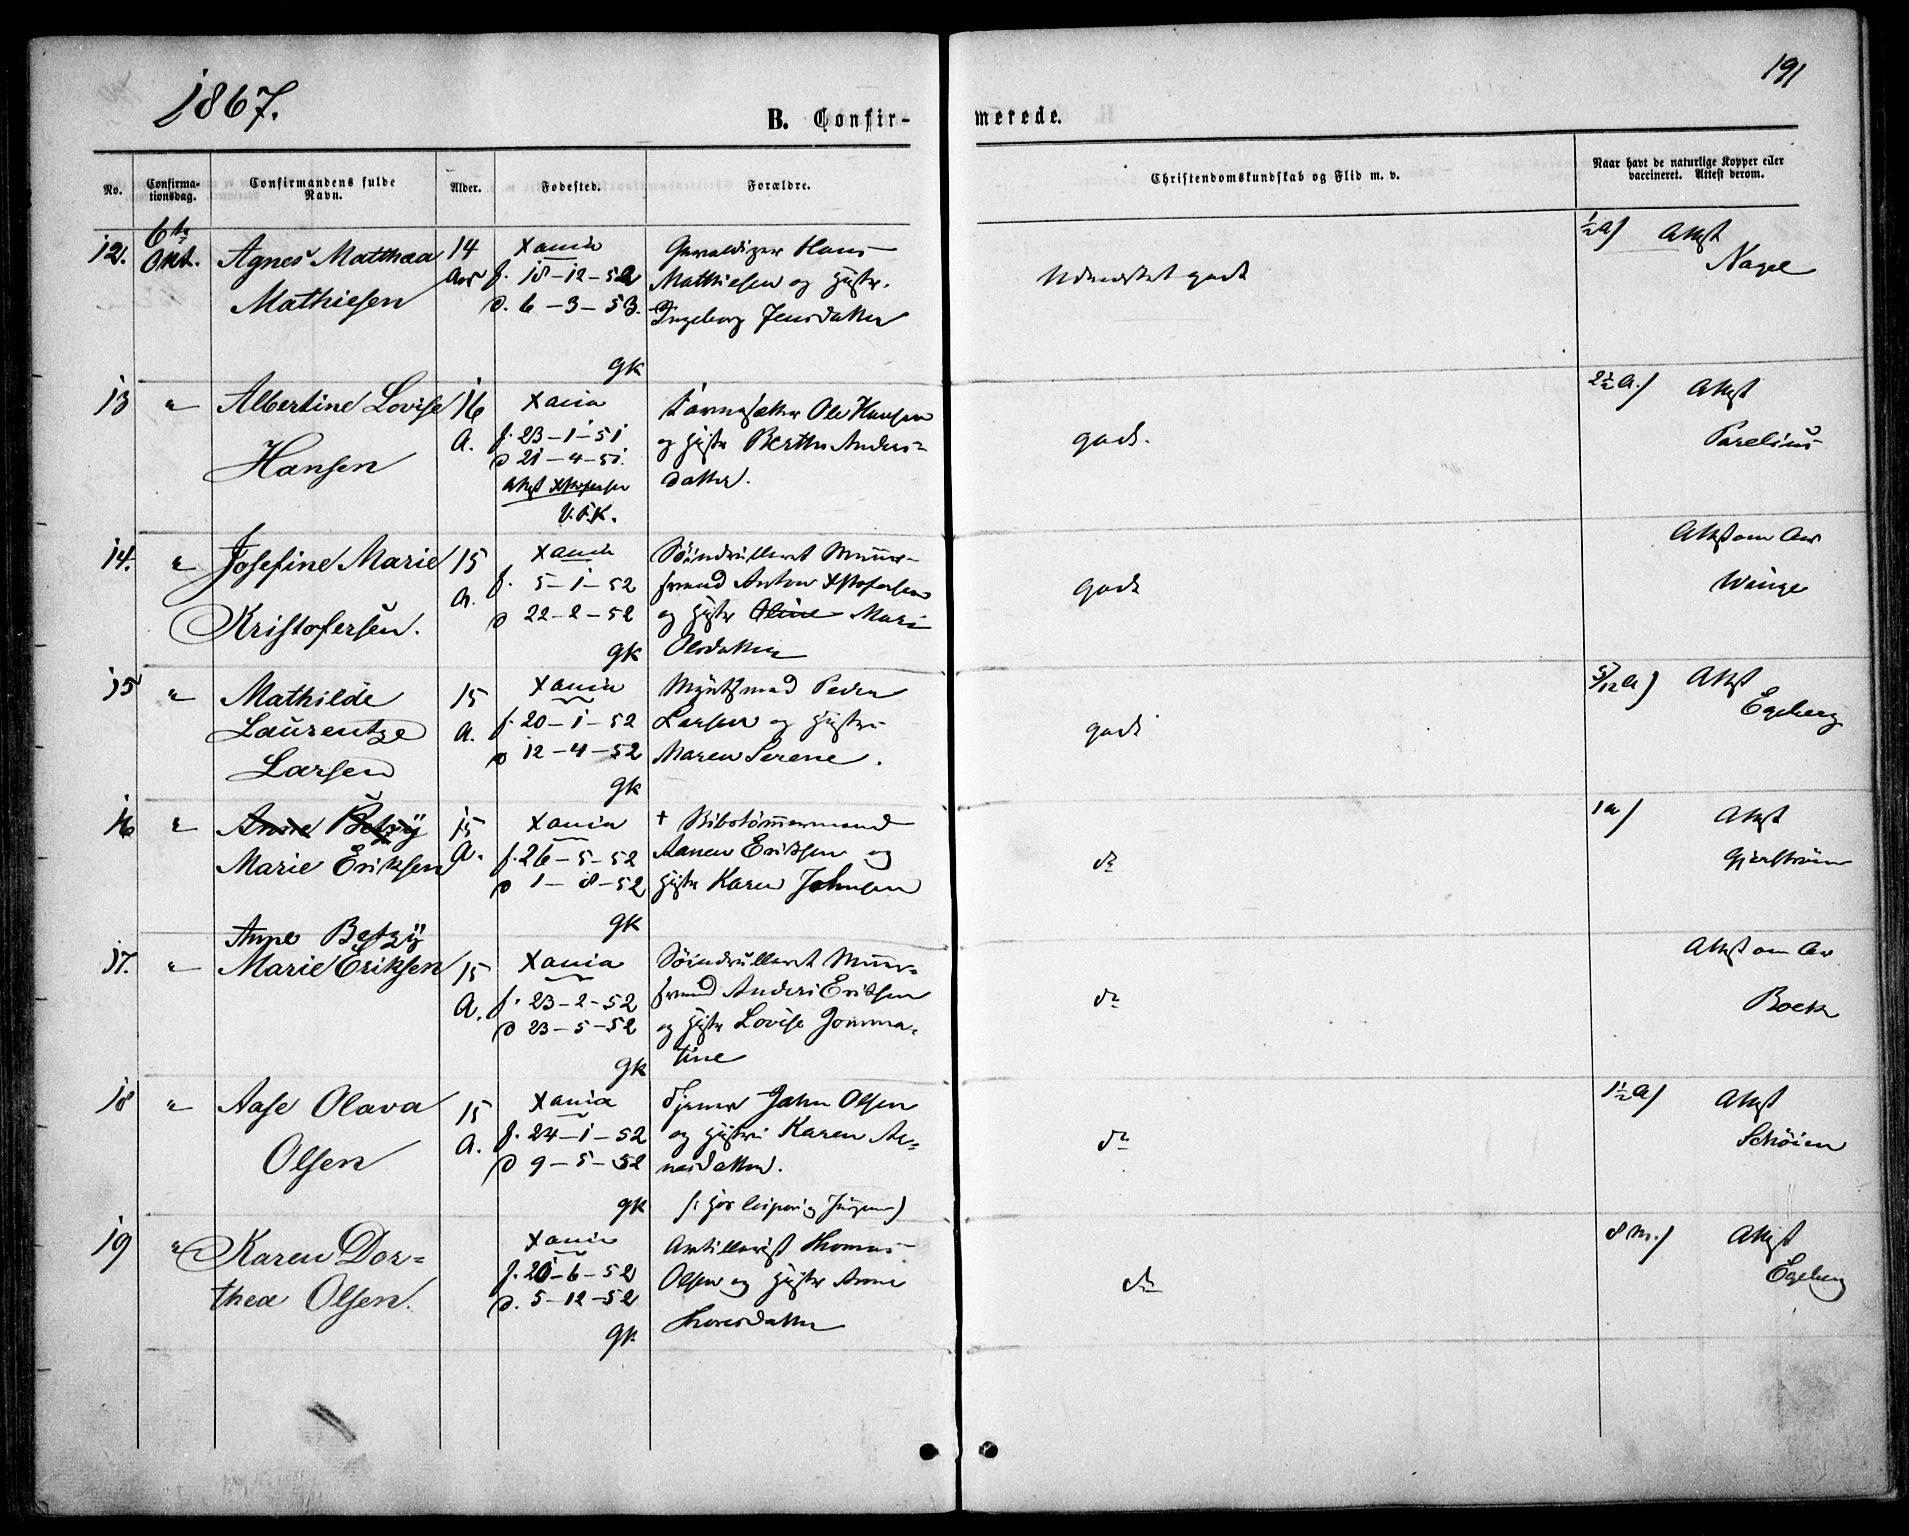 1867.
191
B. Confir-
merede.
No.
Confirma-
tionsdag.
Confirmandens fulde
Navn.
Alder.
Fødested.
Forældre.
Christendomskundskab og Flid m. v.
Naar havt de naturlige Kopper eller
vaccineret. Attest derom.
12.
6te
Okt.
Agnes Matthæa
Mathiesen
14
Aar
Xania
f. 18-12-52
d. 6-3-53.
gk
Hans
Matthiesen og Hustr.
Ingeborg Jensdatter
Udmærket godt
½ A) Attest
Nagel
13
"
Albertine Lovise
Hansen
16
A.
Xania
f. 23-1-51
d 21-4-51.
Attest Xstofersen
V.F.K.
Ole Hansen
og Hustr Berthe Anders-
datter.
godt.
2½ A.) Attest
Parelius
14.
"
Josefine Marie
Kristofersen.
15
A.
Xania
f. 5-1-52
d 22-2-52
gk
Søindrulleret Muur-
svend Anton Xstofersen
og Hustr Oline Marie
Olsdatter
godt
Attest om Ar
Winge
15
"
Mathilde
Laurentze
Larsen
15
A.
Xania
f. 20-1-52
d 12-4-52
gk
Peder
Larsen og Hustru
Maren Serene.
godt
5/12 A) Attest
Egeberg
16
"
Anne Betzÿ
Marie Eriksen
15
A.
Xania
f. 26-5-52
d 1-8-52
gk
+ Bibetømmermand
Aanen Eriksen og
Hustr Karen Johnsen
do
1 A) Attest
Gjerstrøm
17.
"
Anne Betzÿ
Marie Eriksen
15
A.
Xania
f. 23-2-52
d 23-5-52
gk
Søindrulleret Muur-
svend Anders Eriksen
og Hustr Lovise Jomma-
tine
do
Attest om Ar
Boek
18
"
Aase Olava
Olsen
15
A.
Xania
f. 24-1-52
d 9-5-52
gk
Tjener John Olsen
og Hustru Karen Ar-
nesdatter.
do
1½ A) Attest
Schøien
19
"
Karen Dor-
thea Olsen.
Xania
f. 20-6-52
d. 5-12-52
gk.
Artillerist Thomas
Olsen og Hustr Anne
Thoresdatter
do
8 M.) Attest
Egeberg